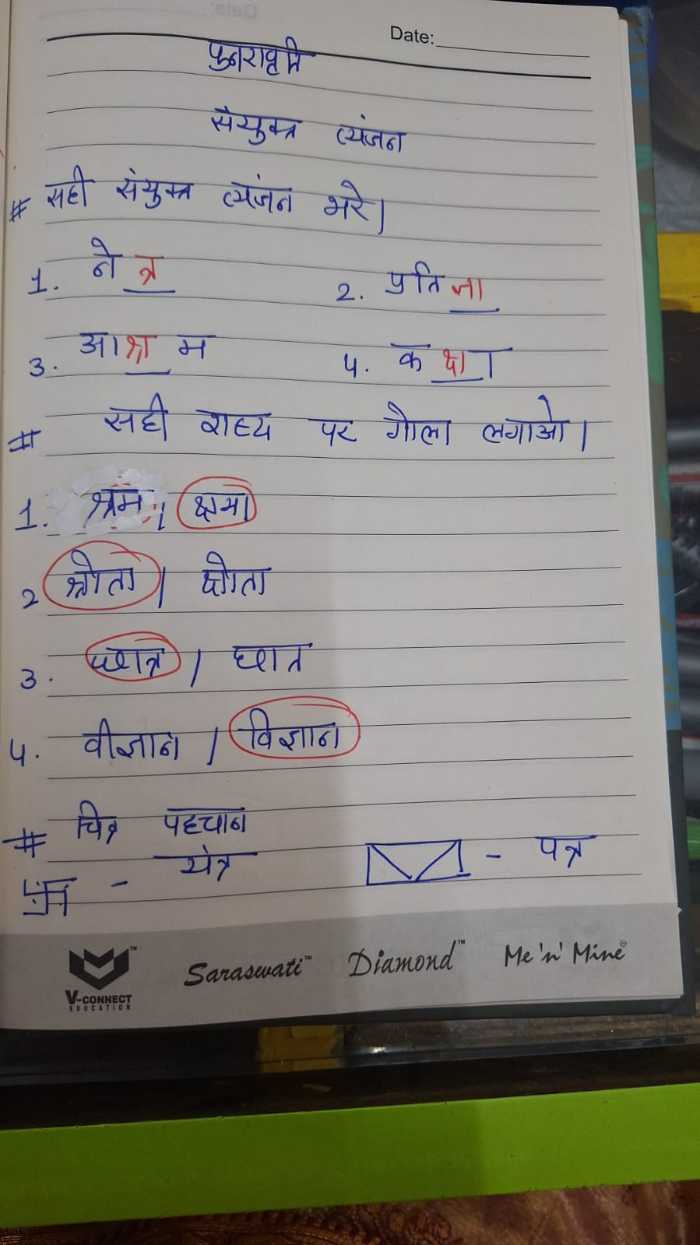 Date:
पुनरावृति
संयुक्त व्यंजन
# सही संयुक्त व्यंजन भरे।
1. ने त्र 2. प्रति ज्ञा
3. आ श्र म 4. क क्ष ा
# सही शब्द पर गोला लगाओ।
1. श्रम / क्षमा
2 श्रोता / क्षोता
3. छात्र / छात
4. वीज्ञान / विज्ञान
# चित्र पहचान
卐 - यंत्र - पत्र
V-CONNECT EDUCATION Saraswati™ Diamond™ Me 'n' Mine®